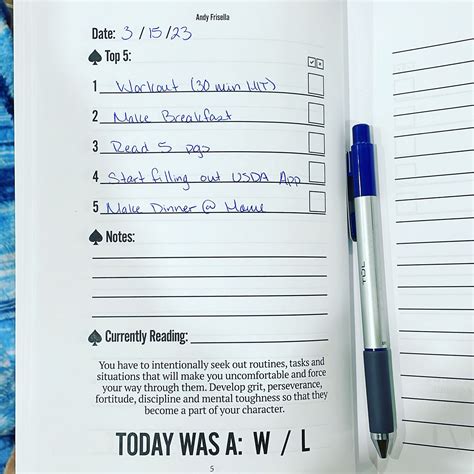 Andy Frisella
Date: 3/15/23
Top 5:
1 Workout (30 min HIT)
2 Make Breakfast
3 Read 5 pgs
4 Start filling out USDA App
5 Make Dinner @ Home
Notes:
Currently Reading:
You have to intentionally seek out routines, tasks and
situations that will make you uncomfortable and force
your way through them. Develop grit, perseverance,
fortitude, discipline and mental toughness so that they
become a part of your character.
TODAY WAS A: W / L
5